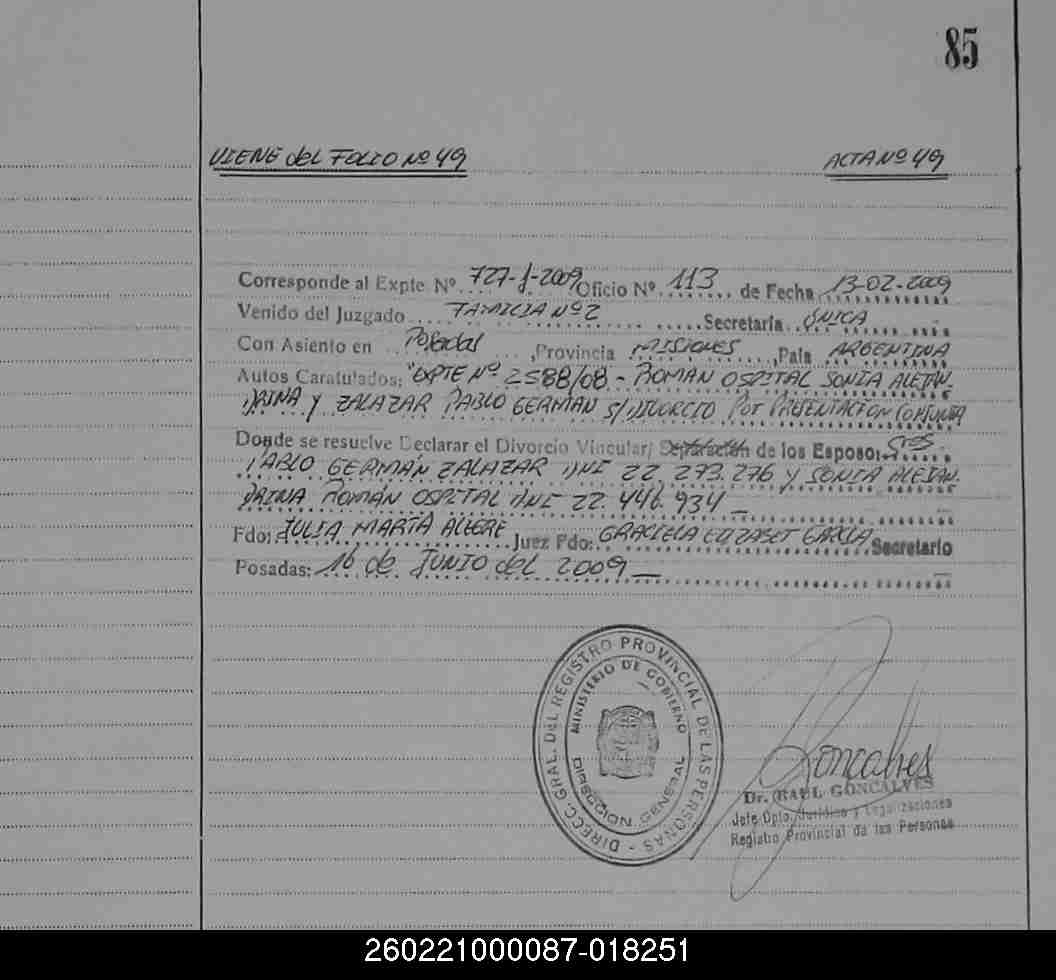 85
VIENE del FOLIO Nº 49 ACTA Nº 49
Corresponde al Expte Nº 727-J-2009 Oficio Nº 113 de Fecha 13-02-2009
Venido del Juzgado FAMILIA Nº 2 Secretaría ÚNICA
Con Asiento en Posadas, Provincia MISIONES, País ARGENTINA
Autos Caratulados: "EXPTE Nº 2588/08 - ROMAN OSPITAL SONIA ALEJAN-
DRINA Y ZALAZAR PABLO GERMAN S/ DIVORCIO Por PRESENTACIÓN CONJUNTA
Donde se resuelve Declarar el Divorcio Vincular/ Separación de los Esposos Sres
PABLO GERMÁN ZALAZAR DNI 22.273.276 y SONIA ALEJAN-
DRINA ROMÁN OSPITAL DNI 22.446.934 —
Fdo: JULIA MARTA ALEGRE Juez Fdo: GRACIELA ELIZABET GARCÍA Secretario
Posadas: 16 de JUNIO del 2009 —
DIRECC. GRAL. DEL REGISTRO PROVINCIAL DE LAS PERSONAS -
MINISTERIO DE GOBIERNO
DIRECCION GENERAL
Goncalves
Dr. RAUL GONCALVES
Jefe Dpto. Jurídico y Legalizaciones
Registro Provincial de las Personas
260221000087-018251